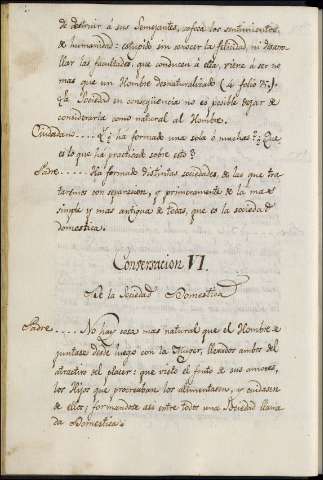 de destruir á sus Semejantes, sofoca los sentimientos
de humanidad: estupido sin conocer la felicidad, ni desarro-
llar las facultades, que conducen á ella, viene á ser no
mas que un Hombre desnaturalizado (4 folio
La Sociedad en consequencia no es posible dejar de
considerarla como natural al Hombre.
Ciudadano.... Y ¿ha formado una sola ó muchas? ¿Que
es lo que há practicado sobre esto?
Padre.... Ha formado distintas sociedades, de las que tra-
taremos con separacion, y primeramente de la mas
simple y mas antigua de todas, que es la sociedad
domestica.
Conversacion VI.
De la Sociedad Domestica
Padre.... No hay cosa mas natural que el Hombre se
juntase desde luego con la Muger, llevados ambos del
atractivo del placer: que visto el fruto de sus amores,
los Hijos que procreaban los alimentasen, y cuidasen
de ellos; formandose asi entre todos una Sociedad llama-
da Domestica.